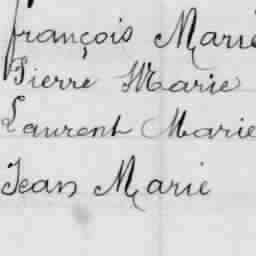 François Marie
Pierre Marie
Laurent Marie
Jean Marie